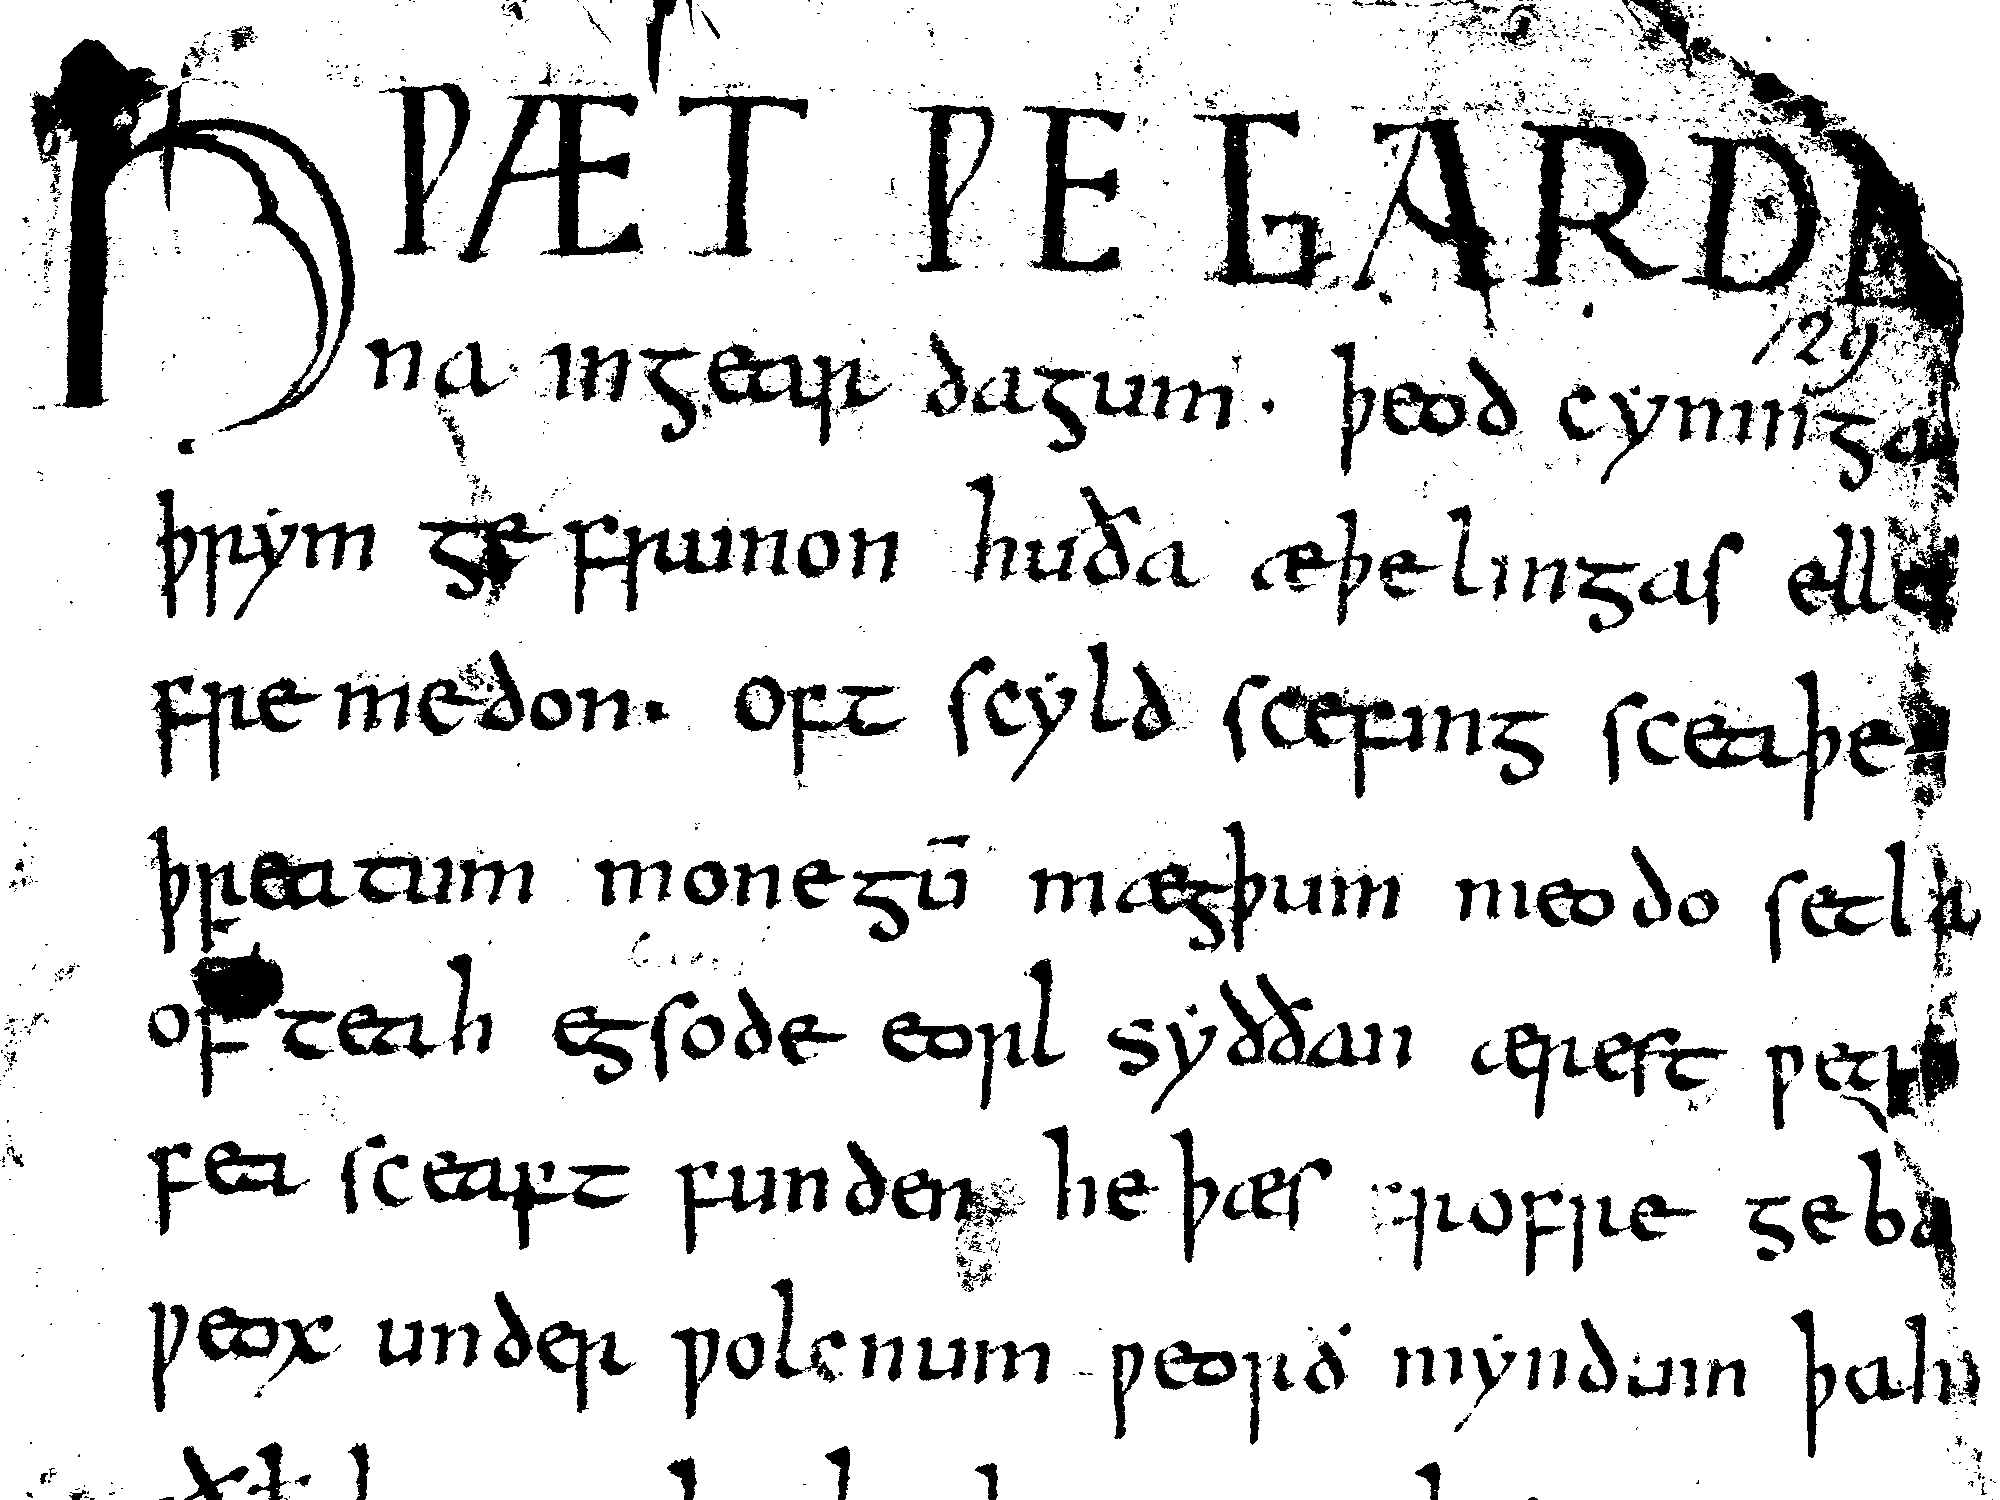 HǷÆT ǷE GARDE
na ingear dagum · þeod cyninga
129
þrym ge frunon huða æþelingas elle
fremedon · Oft scyld scefing sceaþe
þreatum monegū mægþum meodo setla
of teah egsode eorl syððan ærest ƿear
fea sceaft funden he þæs frofre geba
ƿeox under ƿolcnum ƿeorð myndum þah